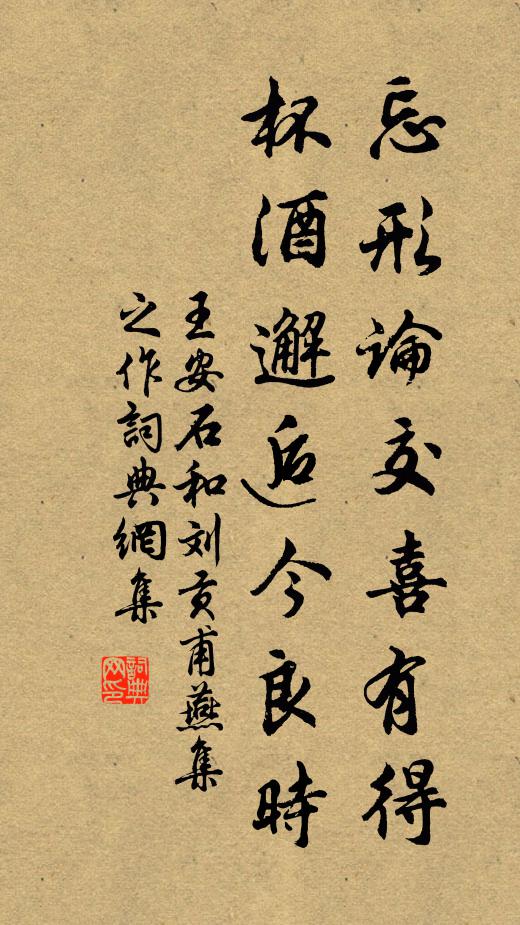 忘形論交喜有得
杯酒邂逅今良時
王安石和刘贡甫燕集
之作詞典網集
詞典网印